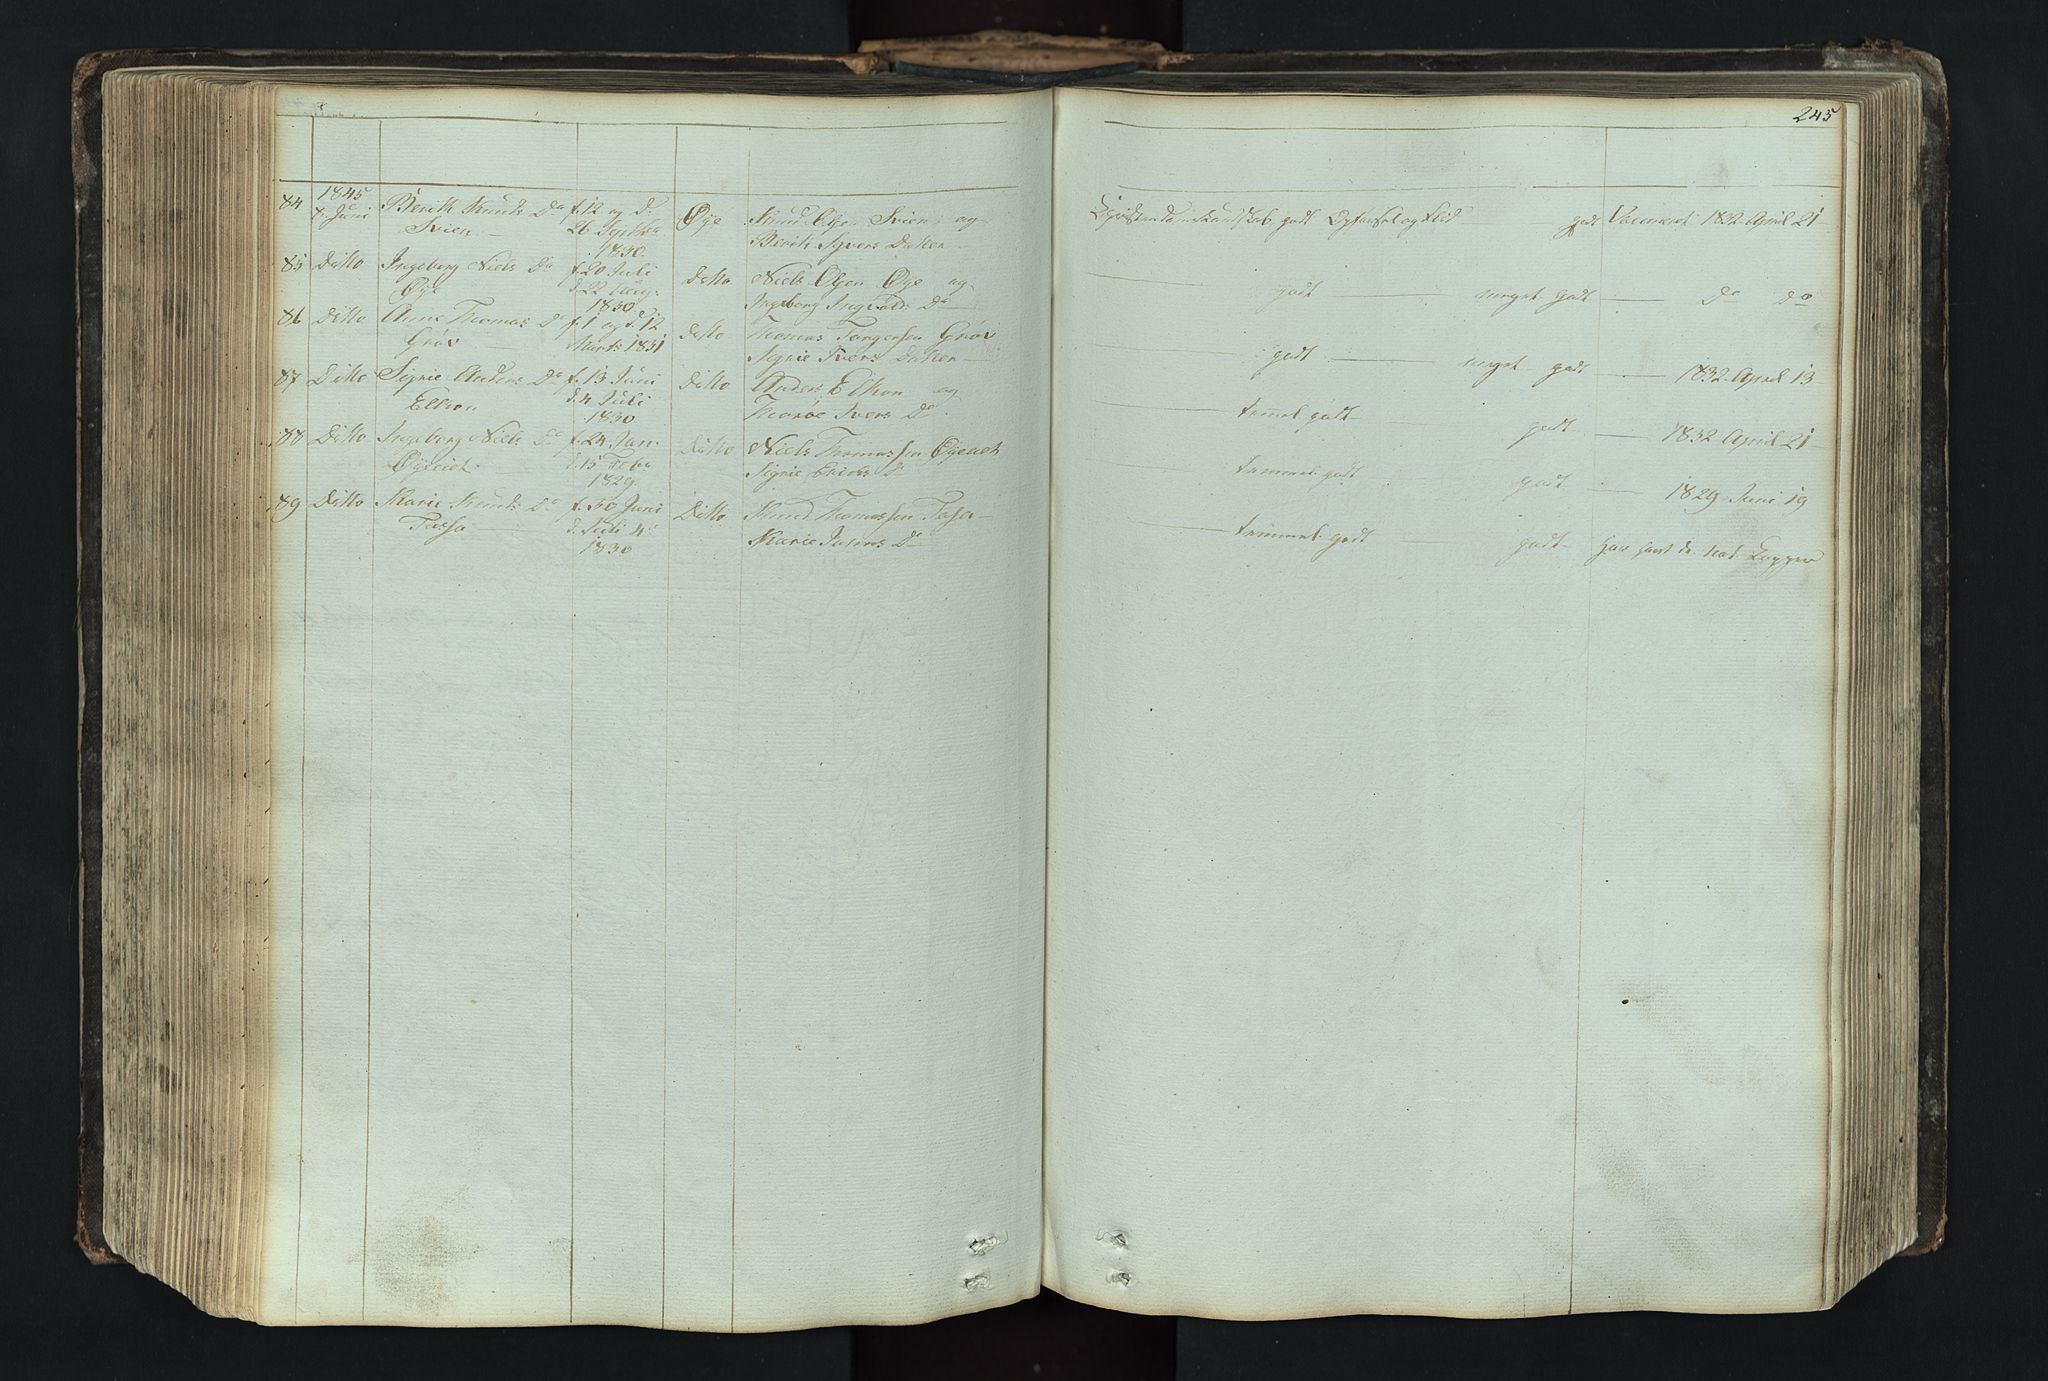 245
84 1845 8de Juni Berith Knuds Da f. 12 og d. Øye Knud Olsen Svien og Christendomskundskab godt Opførsel og Flid godt Vaccineret 1832 April 21
Svien 26 Septbr 1830 Berith Syvers Datter
85 Ditto Ingeborg Niels Da f. 20 Juli Ditto Niels Olsen Øye og godt meget godt Do Do
Øye d. 22 1830 Ingeborg Da
86 Ditto Anne Thomas Da f. 1 og d. 12 Ditto Thomas Grøv godt meget godt 1832 April 13
Grøv Marts 1831 Sigrie Ivers Datter
87 Ditto Sigrie Anders Da f. 13 Juni Ditto Anders og temmel. godt godt 1832 April 21
d. 4 Juli 1830 Ivers Da
88 Ditto Ingeborg Niels Da f. 24 Jan. Ditto Niels Thomassen temmel. godt godt 1829 Juni 19
d. 15 Feb. 1829 Sigrie Da
89 Ditto Marie Knuds Da f. 30 Juni Ditto Knud Thomassen temmel. godt godt har havt de nat. Kopper
d. Juli 4de 1830 Marie Da